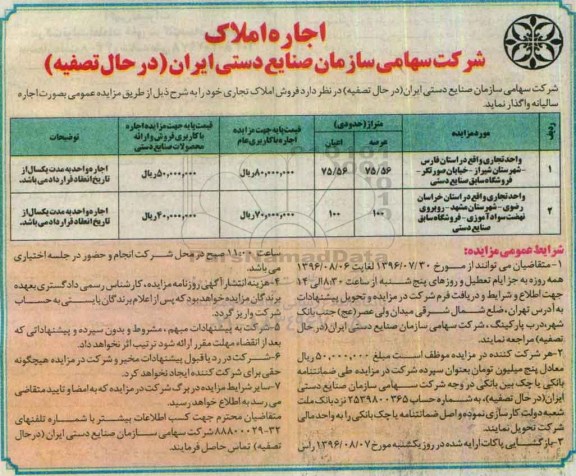 اجاره املاک
شرکت سهامی سازمان صنایع دستی ایران (در حال تصفیه)
شرکت سهامی سازمان صنایع دستی ایران (در حال تصفیه) در نظر دارد فروش املاک تجاری خود را به شرح ذیل از طریق مزایده عمومی بصورت اجاره
سالیانه واگذار نماید.
ردیف
مورد مزایده
متراژ (حدودی)
عرصه
اعیان
قیمت پایه جهت مزایده
اجاره با کاربری عام
قیمت پایه جهت مزایده اجاره
با کاربری فروش و ارائه
محصولات صنایع دستی
توضیحات
۱
واحد تجاری واقع در استان فارس
- شهرستان شیراز - خیابان صورتگر -
فروشگاه سابق صنایع دستی
۷۵/۵۶
۷۵/۵۶
۸۰,۰۰۰,۰۰۰ ریال
۵۰,۰۰۰,۰۰۰ ریال
اجاره واحد به مدت یکسال از
تاریخ انعقاد قرارداد می باشد.
۲
واحد تجاری واقع در استان خراسان
رضوی - شهرستان مشهد - روبروی
نهضت سوادآموزی - فروشگاه سابق
صنایع دستی
۱۰۰
۱۰۰
۷۰,۰۰۰,۰۰۰ ریال
۴۰,۰۰۰,۰۰۰ ریال
اجاره واحد به مدت یکسال از
تاریخ انعقاد قرارداد می باشد.
شرایط عمومی مزایده:
۱- متقاضیان می توانند از مورخ ۱۳۹۶/۰۷/۳۰ لغایت ۱۳۹۶/۰۸/۰۶
همه روزه به جز ایام تعطیل و روزهای پنج شنبه از ساعت ۸:۳۰ الی ۱۴
جهت اطلاع و شرایط و دریافت فرم شرکت در مزایده و تحویل پیشنهادات
به آدرس تهران، ضلع شمال شرقی میدان ولی عصر (عج) جنب بانک
شهر، درب پارکینگ، شرکت سهامی سازمان صنایع دستی ایران (در حال
تصفیه) مراجعه نمایند.
۲- هر شرکت کننده در مزایده موظف است مبلغ ۵۰,۰۰۰,۰۰۰ ریال
معادل پنج میلیون تومان بعنوان سپرده شرکت در مزایده طی ضمانتنامه
بانکی یا چک بین بانکی در وجه شرکت سهامی سازمان صنایع دستی
ایران (در حال تصفیه)، به شماره حساب ۲۵۲۹۸۰۰۳۶۵ نزد بانک ملت
شعبه دولت کارسازی نموده و اصل ضمانتنامه یا چک بانکی را به واحد مالی
شرکت تحویل نمایند.
۳- بازگشایی پاکات ارایه شده در روز یکشنبه مورخ ۱۳۹۶/۰۸/۰۷ راس
ساعت ۱۱:۰۰ در محل شرکت انجام و حضور در جلسه اختیاری
می باشد.
۴- هزینه انتشار آگهی روزنامه مزایده، کارشناس رسمی دادگستری بعهده
برندگان مزایده خواهد بود که پس از اعلام برندگان بایستی به حساب
شرکت واریز گردد.
۵- شرکت به پیشنهادات مبهم، مشروط و بدون سپرده و پیشنهاداتی که
بعد از انقضاء مهلت مقرر ارائه شود ترتیب اثر نخواهد داد.
۶- شرکت در رد یا قبول پیشنهادات مخیر و شرکت در مزایده هیچگونه
حقی برای شرکت کننده ایجاد نخواهد کرد.
۷- سایر شرایط مزایده در برگ شرکت در مزایده که به امضاء و تایید متقاضی
می رسد به اطلاع خواهد رسید.
متقاضیان محترم جهت کسب اطلاعات بیشتر با شماره تلفنهای
۳۲-۸۸۸۰۰۰۲۹ شرکت سهامی سازمان صنایع دستی ایران (در حال
تصفیه) تماس حاصل فرمایند.
ParsNamadData